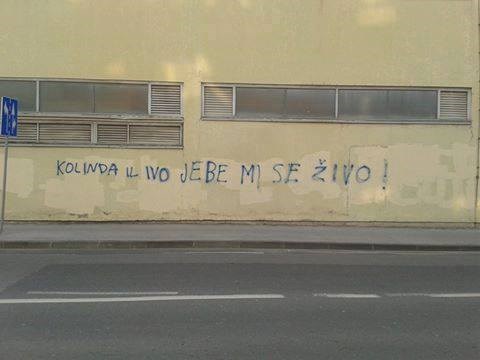 KOLINDA IL IVO JEBE MI SE ŽIVO!